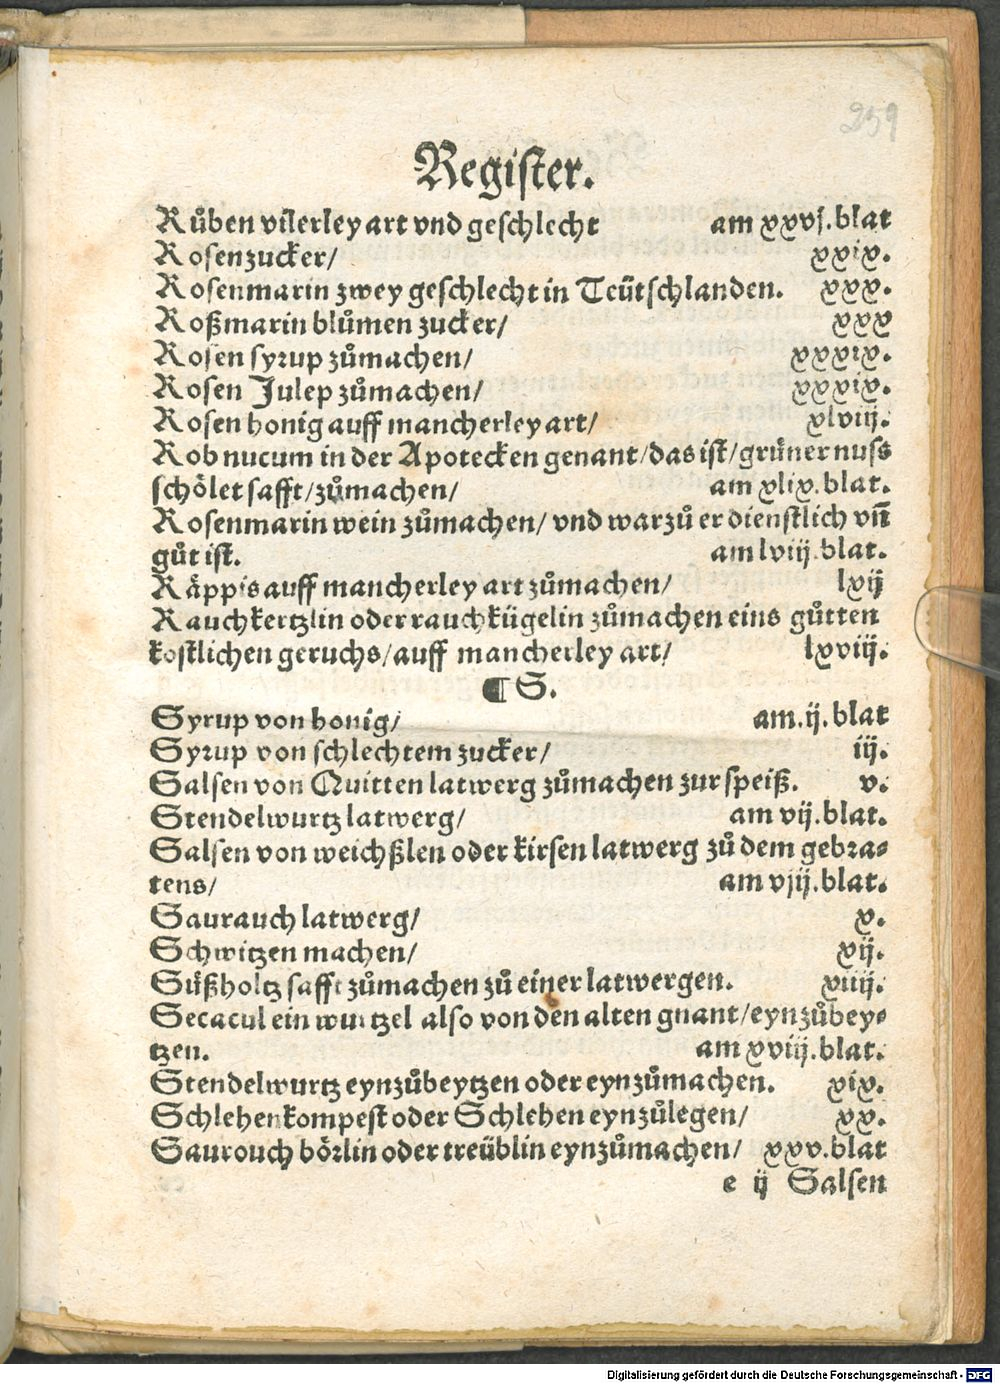 259
Regiſter.
Růben vilerley art vnd geſchlecht am xxvj. blat
Roſenzucker/ xxix.
Roſenmarin zwey geſchlecht in Teütſchlanden. xxx.
Roßmarin blůmen zucker/ xxx
Roſen ſyrup zůmachen/ xxxix.
Roſen Julep zůmachen/ xxxix.
Roſen honig auff mancherley art/ xlviij.
Rob nucum in der Apotecken genant/das iſt/grüner nuſs
ſchölet ſafft/zůmachen/ am xlix. blat.
Roſenmarin wein zůmachen/ vnd warzů er dienſtlich vñ
gůt iſt. am lviij. blat.
Räppis auff mancherley art zůmachen/ lxij
Rauchkertzlin oder rauchkügelin zůmachen eins gůtten
koſtlichen geruchs/auff mancherley art/ lxviij.
¶ S.
Syrup von honig/ am. ij. blat
Syrup von ſchlechtem zucker/ iij.
Salſen von Quitten latwerg zůmachen zur ſpeiß. v.
Stendelwurtz latwerg/ am vij. blat.
Salſen von weichßlen oder kirſen latwerg zů dem gebra⸗
tens/ am viij. blat.
Saurauch latwerg/ x.
Schwitzen machen/ xij.
Süßholtz ſafft zůmachen zů einer latwergen. xiiij.
Secacul ein wurtzel alſo von den alten gnant/eynzůbey⸗
tzen. am xviij. blat.
Stendelwurtz eynzůbeytzen oder eynzůmachen. xix.
Schlehenkompeſt oder Schlehen eynzůlegen/ xx.
Saurouch börlin oder treüblin eynzůmachen/ xxv. blat
e ij Salſen
Digitalisierung gefördert durch die Deutsche Forschungsgemeinschaft - DFG